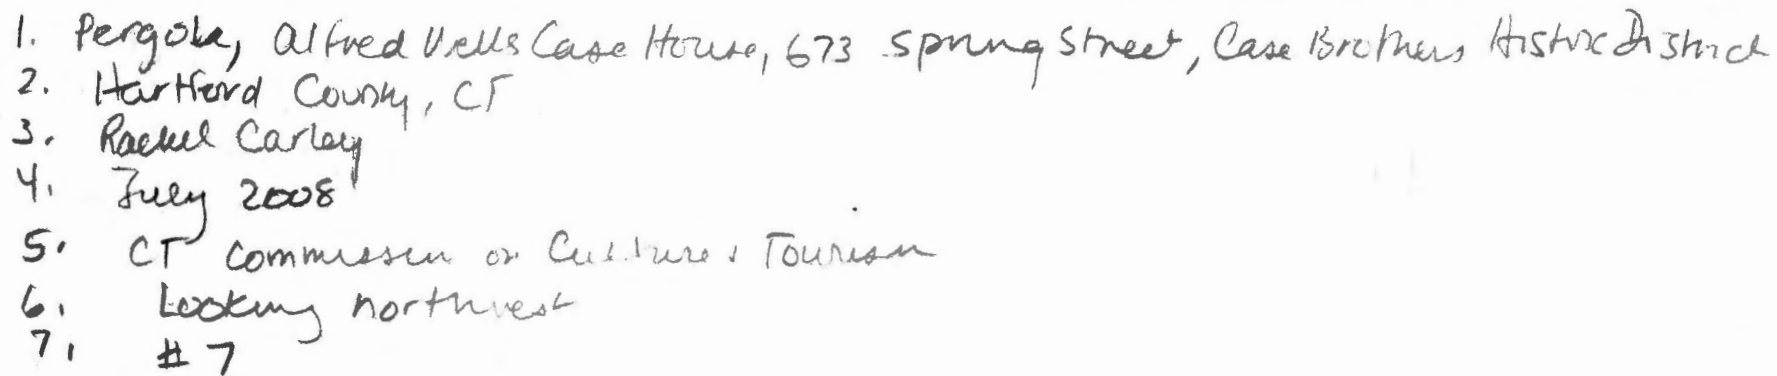 1. Pergola, Alfred Wells Case House, 673 Spring Street, Case Brothers Historic District
2. Hartford County, CT
3. Rachel Carley
4. July 2008
5. CT Commission on Culture & Tourism
6. Looking northwest
7. # 7